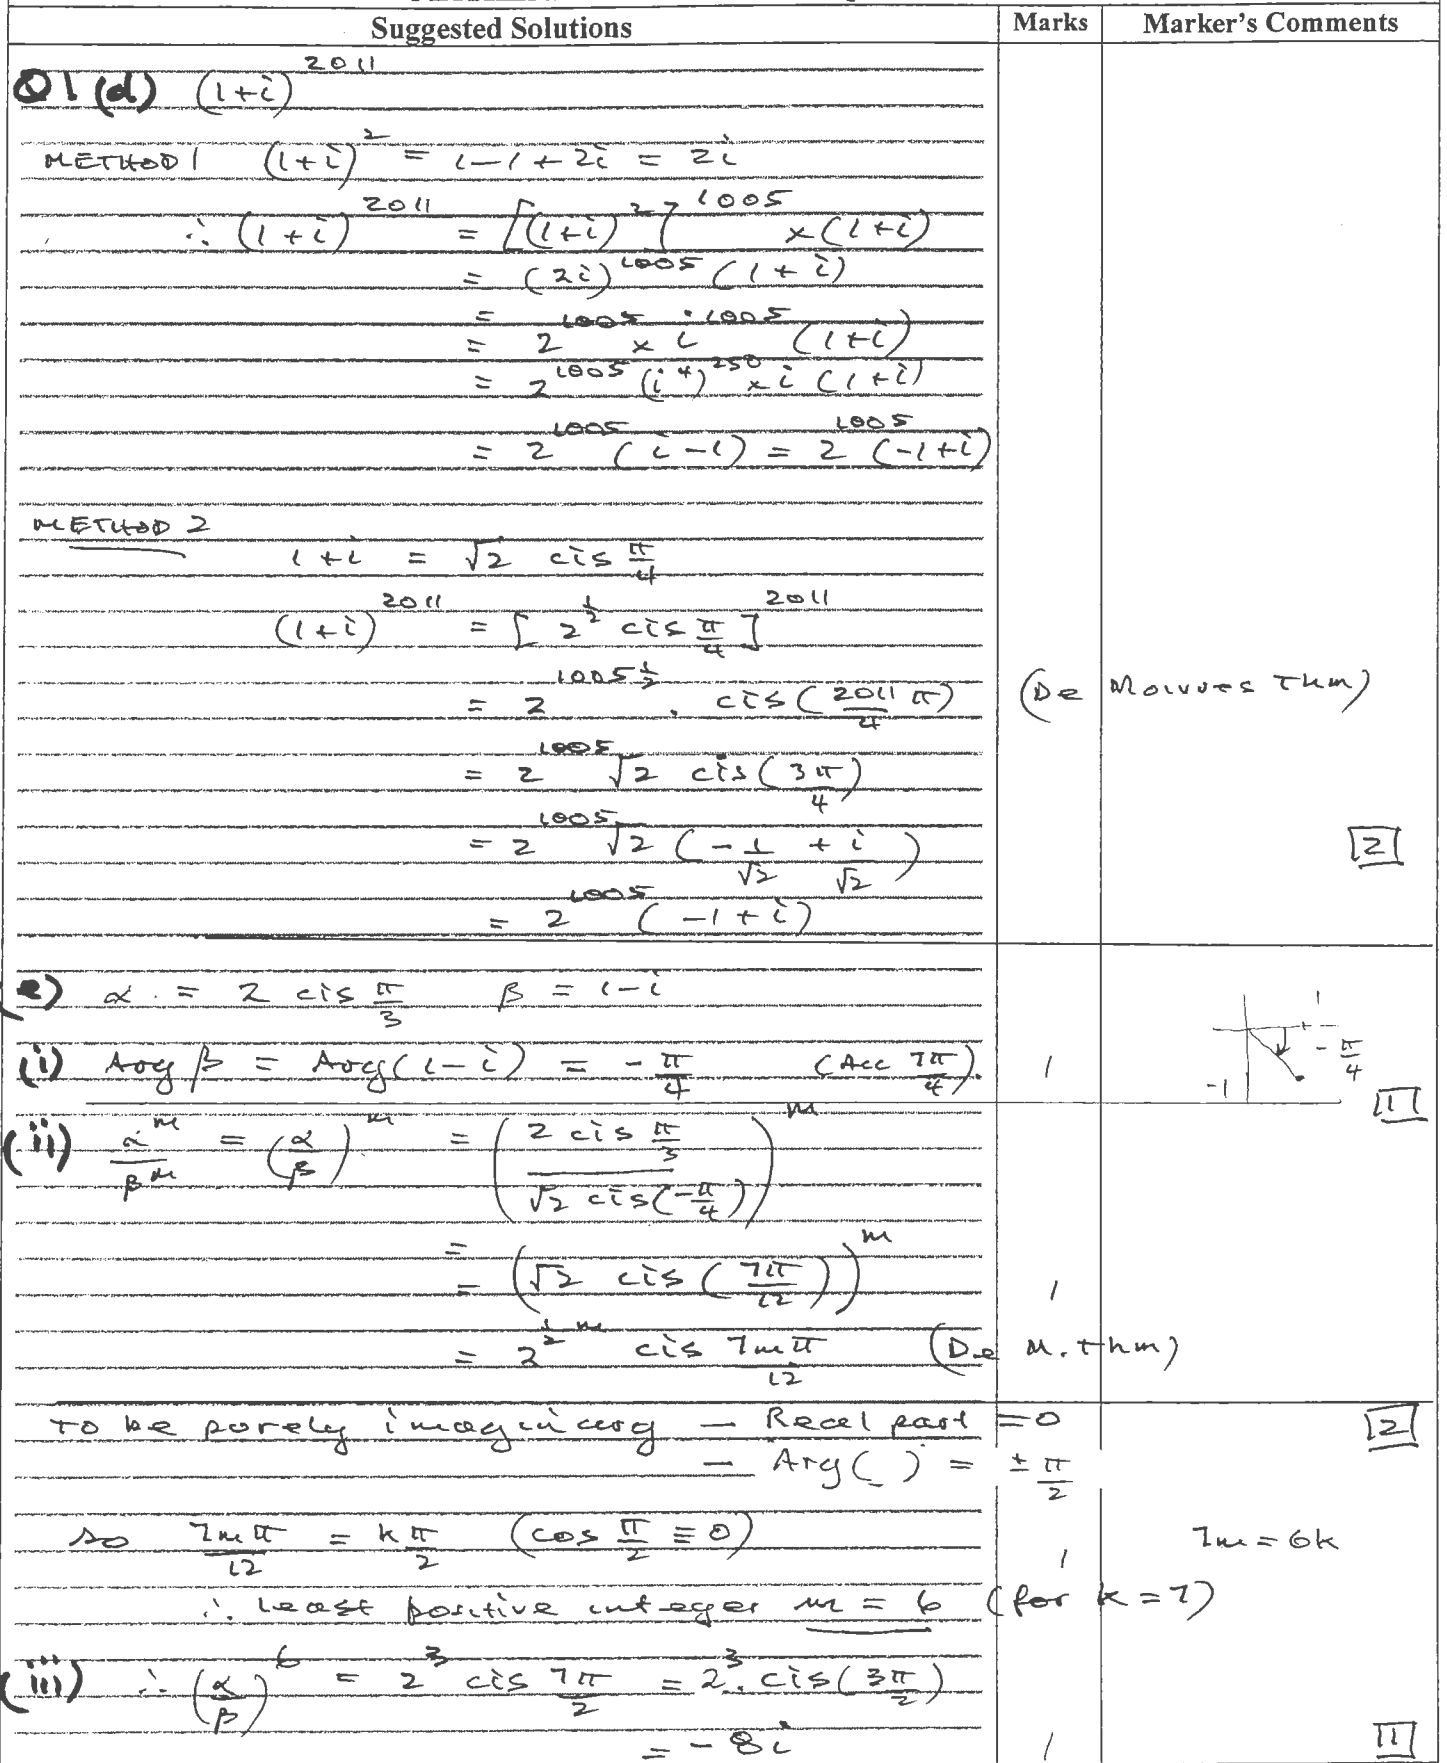 Suggested Solutions Marks Marker's Comments
Q1 (d) (1+i)^2011
METHOD 1 (1+i)^2 = 1-1+2i = 2i
∴ (1+i)^2011 = [(1+i)^2]^1005 × (1+i)
= (2i)^1005 (1+i)
=
= 2^1005 × i^1005 (1+i)
= 2^1005 (i^4)^250 × i (1+i)
= 2^1005 (i-1) = 2^1005 (-1+i)
METHOD 2
1+i = √2 cis π/4
(1+i)^2011 = [2^½ cis π/4]^2011
= 2^1005½ . cis(2011/4 π) (De Moivres Thm)
= 2^1005 √2 cis(3π/4)
= 2^1005 √2 (-1/√2 + i/√2) [2]
= 2^1005 (-1+i)
(e) α = 2 cis π/3 β = 1-i
(i) Arg β = Arg(1-i) = -π/4 (Acc 7π/4). 1 1 -π/4 -1 [1]
(ii) α^m/β^m = (α/β)^m = (2 cis π/3 / √2 cis(-π/4))^m
=
= (√2 cis(7π/12))^m 1
= 2^(½m) cis 7mπ/12 (De M. thm)
To be purely imaginary – Real part = 0 [2]
– Arg( ) = ±π/2
so 7mπ/12 = kπ/2 (cos π/2 ≡ 0) 1 7m = 6k
∴ Least positive integer m = 6 (for k = 7)
(iii) ∴ (α/β)^6 = 2^3 cis 7π/2 = 2^3. cis(3π/2)
= -8i 1 [1]